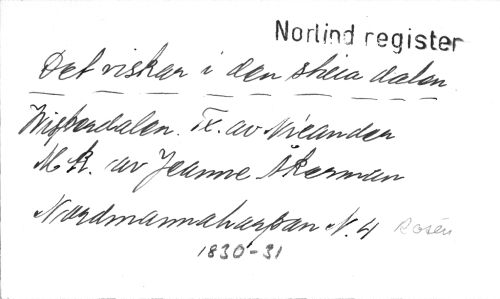 Norlind register
Det viskar i den stilla dalen
Tx. av Nicander
M k. av Jeanne Åkerman
Nordmannaharpan N. 4 Rosén
1830-31